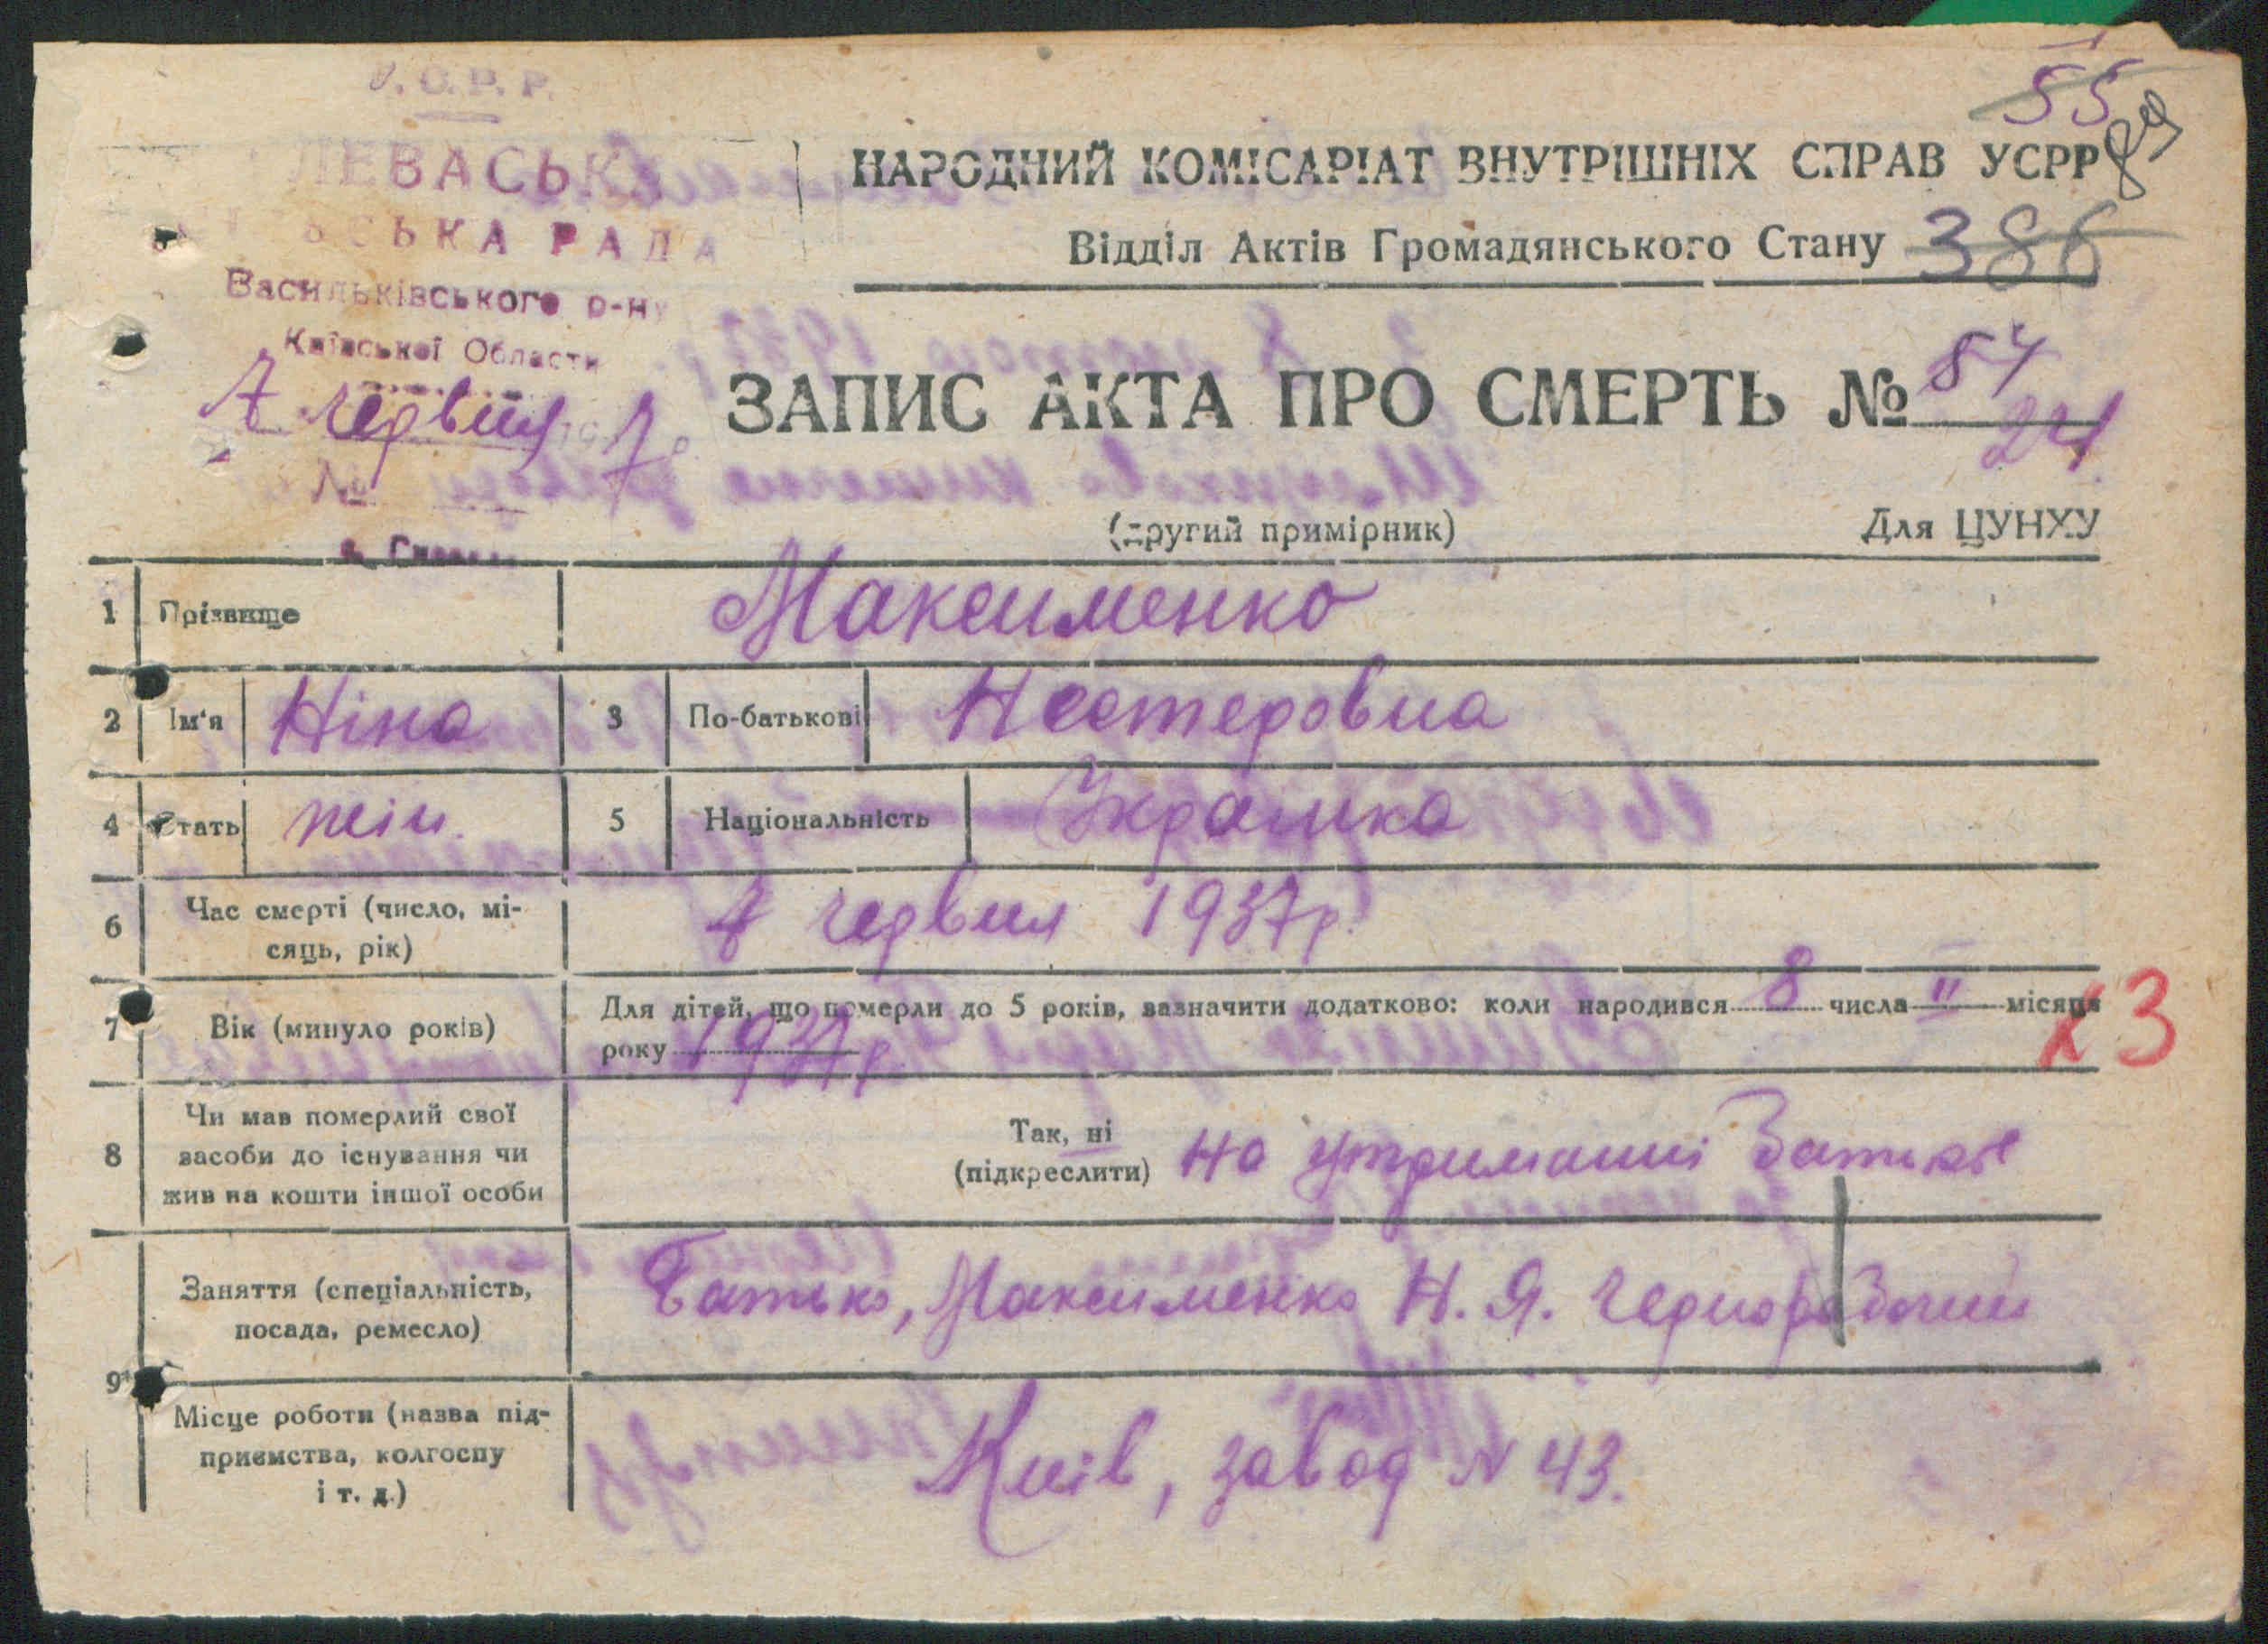 У.С.Р.Р.
ЛЕВАСЬКА
РАДА
Васильківського р-ну
Київської Области
7 червня 1937 р.
№
55
89
НАРОДНИЙ КОМІСАРІАТ ВНУТРІШНІХ СПРАВ УСРР
Відділ Актів Громадянського Стану 386
ЗАПИС АКТА ПРО СМЕРТЬ № 84
24
(другий примірник) Для ЦУНХУ
1 Прізвище Максименко
2 Ім'я Ніна 3 По-батькові Нестеровна
4 Стать жін. 5 Національність Українка
6 Час смерті (число, мі-
сяць, рік) 7 червня 1937 р.
7 Вік (минуло років) Для дітей, що померли до 5 років, зазначити додатково: коли народився 8 числа II місяця
року 1937 р. 3
8 Чи мав померлий свої
засоби до існування чи
жив на кошти іншої особи Так, ні
(підкреслити) на утриманні батька
9 Заняття (спеціальність,
посада, ремесло) Батько, Максименко Н. Я. чернорабочий
Місце роботи (назва під-
приємства, колгоспу
і т. д.) Київ, завод N 43.